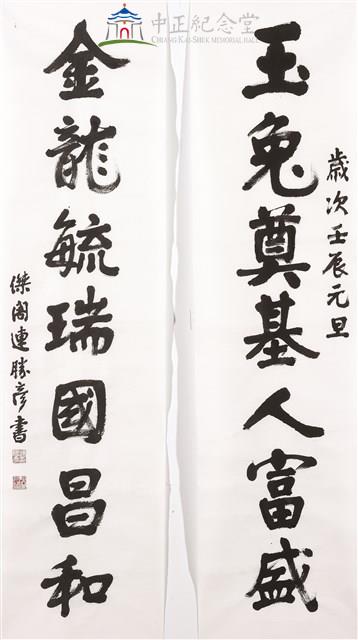 中正紀念堂
CHIANG KAI-SHEK MEMORIAL HALL
玉兔奠基人富盛
歲次壬辰元旦
金龍毓瑞國昌和
傑閣連勝彥書